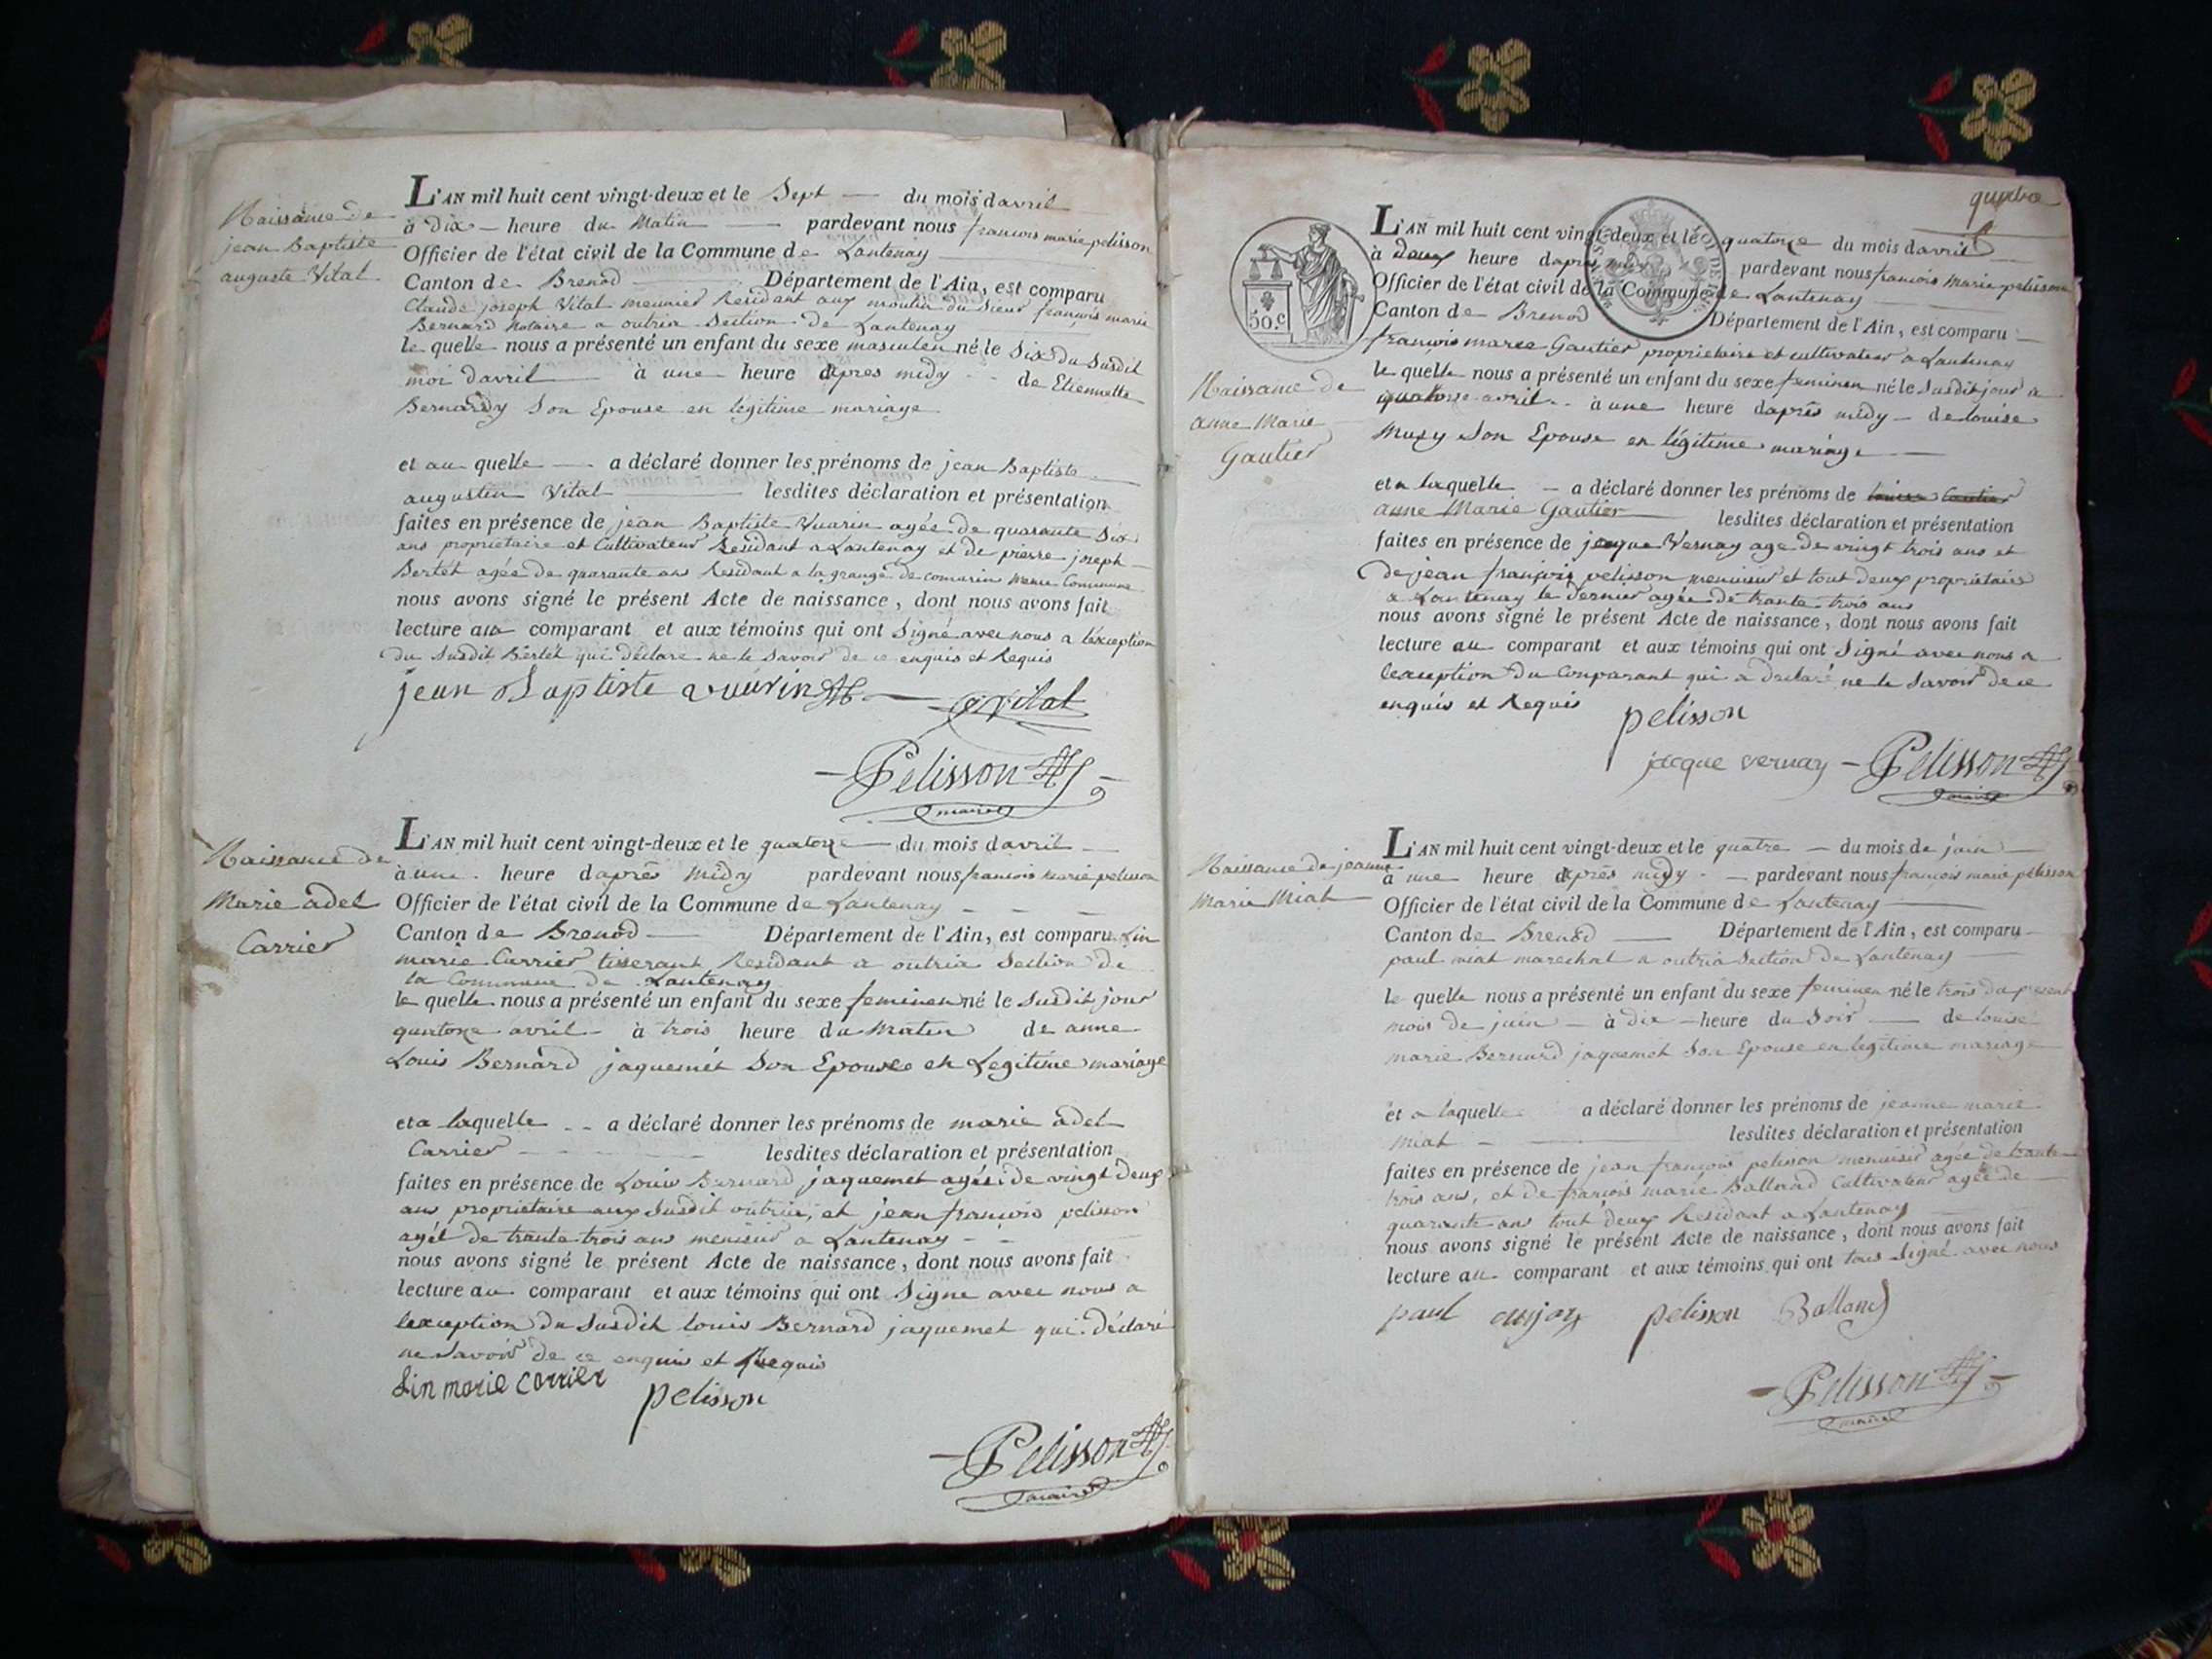 Naissance de
jean Baptiste
auguste Vital
L'AN mil huit cent vingt-deux et le Sept du mois davril
à dix heure du Matin pardevant nous francois marie pelisson
Officier de l'état civil de la Commune de Lantenay
Canton de Brenod Département de l'Ain, est comparu
Claude joseph Vital meunier Residant aux moulin du Sieur françois marie
Bernard Notaire a outria Section de Lantenay
le quelle nous a présenté un enfant du sexe masculen né le Six du Susdit
moi davril à une heure dapres midy de Etiennette
Bernardy Son Epouse en legitime mariage
et au quelle a déclaré donner les prénoms de jean Baptiste
augustin Vital lesdites déclaration et présentation
faites en présence de jean Baptiste Vuarin agée de quarante Six
ans propriétaire et Cultivateur Residant a Lantenay et de pierre joseph
Bertet agée de quarante ans Residant a la grange de comarin meme Commune
nous avons signé le présent Acte de naissance, dont nous avons fait
lecture au comparant et aux témoins qui ont Signé avec nous a léxception
du Susdit Bertet qui déclare ne le Savoir de ce enquis et Requis
jean Baptiste vuarin Vital
Pelisson
maire
Naissance de
Marie adel
Carrier
L'AN mil huit cent vingt-deux et le quatorze du mois davril
à une heure daprès midy pardevant nous francois marie pelisson
Officier de l'état civil de la Commune de Lantenay
Canton de Brenod Département de l'Ain, est comparu Lin
marie Carrier tisserant Residant a outria Section de
la Commune de Lantenay
le quelle nous a présenté un enfant du sexe feminen né le susdit jour
quatorze avril à trois heure du Matin de anne
Louis Bernard jaquemét Son Epouse en Legitime mariage
et a laquelle a déclaré donner les prénoms de marie adel
Carrier lesdites déclaration et présentation
faites en présence de Louis Bernard jaquemet agée de vingt deux
ans propriétaire aux Susdit outria, et jean francois pelisson
agét de trante trois ans menisier a Lantenay
nous avons signé le présent Acte de naissance, dont nous avons fait
lecture au comparant et aux témoins qui ont Signe avec nous a
lexception du Susdit louis Bernard jaquemet qui déclaré
ne Savoir de ce enquis et Requis
Lin marie carrier pelisson
Pelisson
maire
quatre
50.c
L'AN mil huit cent vingt-deux et le quatorze du mois davril
à deux heure dapres midy pardevant nous francois marie pelisson
Officier de l'état civil de la Commune de Lantenay
Canton de Brenod Département de l'Ain, est comparu
françois marie Gautier proprietaire et cultivateur a Lantenay
Naissance de
anne Marie
Gautier
le quelle nous a présenté un enfant du sexe feminen né le Susdit jour a
quatorse avril à une heure daprès midy de louise
Muzy Son Epouse en légitime mariage
et a laquelle a déclaré donner les prénoms de louise Gautier
anne Marie Gautier lesdites déclaration et présentation
faites en présence de jacque Vernay age de vingt trois ans et
de jean françois pelisson menuisier et tout deux propriétaire
a Lantenay le dernier agée de trante trois ans
nous avons signé le présent Acte de naissance, dont nous avons fait
lecture au comparant et aux témoins qui ont Signé avec nous a
lexception du Comparant qui a declaré ne le Savoir de ce
enquis et Requis
pelisson
jacque vernay Pelisson
maire
Naissance de jeanne
Marie Miat
L'AN mil huit cent vingt-deux et le quatre du mois de juin
à une heure dprès midy pardevant nous françois marie pelisson
Officier de l'état civil de la Commune de Lantenay
Canton de Brenod Département de l'Ain, est comparu
paul miat marechal a outria Section de Lantenay
le quelle nous a présenté un enfant du sexe feminen né le trois du present
mois de juin à dix heure du Soir de louise
marie Bernard jaquemet Son Epouse en legitime mariage
et a laquelle a déclaré donner les prénoms de jeanne marie
miat lesdites déclaration et présentation
faites en présence de jean françois pelisson menuisier agée de trante
trois ans, et de françois marie Balland Cultivateur agée de
quarante ans tout deux Residant a Lantenay
nous avons signé le présent Acte de naissance, dont nous avons fait
lecture au comparant et aux témoins qui ont tous Signé avec nous
paul pelisson Balland
Pelisson
maire